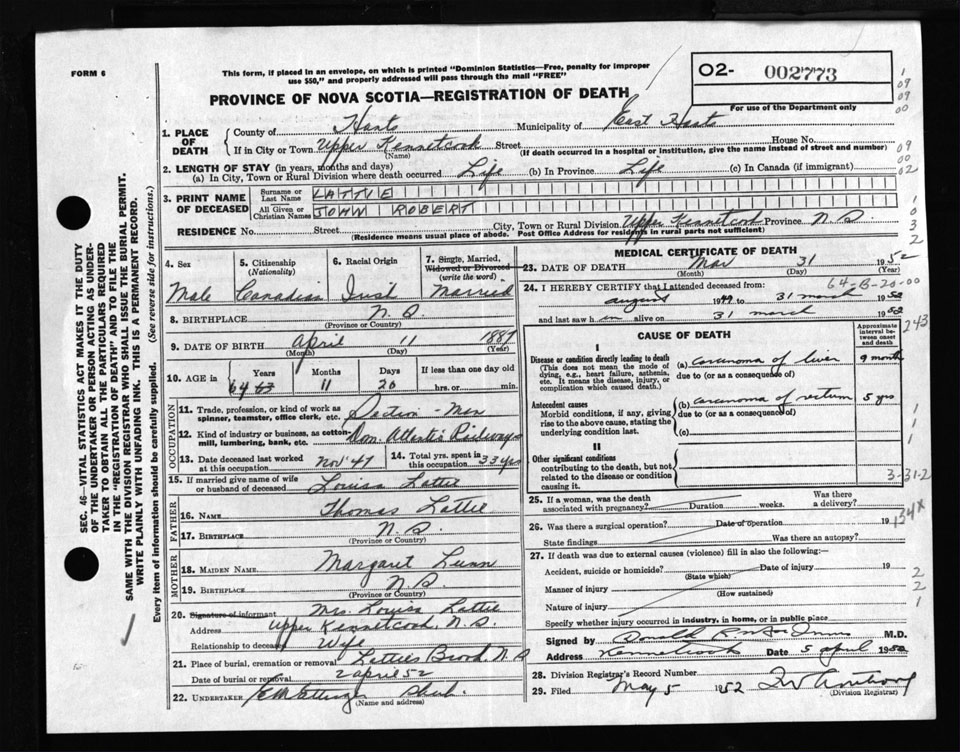 FORM 6
This form, if placed in an envelope, on which is printed "Dominion Statistics—Free, penalty for improper
use $50," and properly addressed will pass through the mail "FREE"
02- 002773
For use of the Department only
PROVINCE OF NOVA SCOTIA—REGISTRATION OF DEATH
1. PLACE OF DEATH
County of Hants Municipality of East Hants
If in City or Town Upper Kennetcook Street House No.
(Name) (If death occurred in a hospital or institution, give the name instead of street and number)
2. LENGTH OF STAY (in years, months and days)
(a) In City, Town or Rural Division where death occurred Life (b) In Province Life (c) In Canada (if immigrant)
3. PRINT NAME OF DECEASED
Surname or Last Name LATTIE
All Given or Christian Names JOHN ROBERT
RESIDENCE No. Street City, Town or Rural Division Upper Kennetcook Province N.S.
(Residence means usual place of abode. Post Office Address for residents in rural parts not sufficient)
4. Sex Male
5. Citizenship (Nationality) Canadian
6. Racial Origin Irish
7. Single, Married, Widowed or Divorced (write the word) Married
8. BIRTHPLACE N.S.
(Province or Country)
9. DATE OF BIRTH April 11 1887
(Month) (Day) (Year)
10. AGE in Years Months Days If less than one day old
64 63 11 20 hrs. or min.
OCCUPATION
11. Trade, profession, or kind of work as spinner, teamster, office clerk, etc. Section-Man
12. Kind of industry or business, as cotton-mill, lumbering, bank, etc. Dom. Atlantic Railway
13. Date deceased last worked at this occupation Nov '47
14. Total yrs. spent in this occupation 33 yrs
15. If married give name of wife or husband of deceased Louisa Lattie
FATHER
16. NAME Thomas Lattie
17. BIRTHPLACE N.S.
(Province or Country)
MOTHER
18. MAIDEN NAME Margaret Lunn
19. BIRTHPLACE N.S.
(Province or Country)
20. Signature of informant Mrs. Louisa Lattie
Address Upper Kennetcook, N.S.
Relationship to deceased Wife
21. Place of burial, cremation or removal Latties Brook, N.S
Date of burial or removal 2 april 52
22. UNDERTAKER E M Ettinger Shub.
(Name and address)
MEDICAL CERTIFICATE OF DEATH
23. DATE OF DEATH Mar 31 1952
(Month) (Day) (Year)
64-B-20-00
24. I HEREBY CERTIFY that I attended deceased from:
august 1949 to 31 march 1952
and last saw h im alive on 31 march 1952
CAUSE OF DEATH
Approximate interval between onset and death
I
Disease or condition directly leading to death
(This does not mean the mode of dying, e.g., heart failure, asthenia, etc. It means the disease, injury, or complication which caused death.)
(a) carcinoma of liver 9 month
due to (or as a consequence of)
Antecedent causes
Morbid conditions, if any, giving rise to the above cause, stating the underlying condition last.
(b) carcinoma of rectum 5 yrs
due to (or as a consequence of)
(c)
II
Other significant conditions
contributing to the death, but not related to the disease or condition causing it.
3-31-2
25. If a woman, was the death associated with pregnancy? Duration weeks. Was there a delivery?
26. Was there a surgical operation? Date of operation 19
State findings Was there an autopsy?
27. If death was due to external causes (violence) fill in also the following:—
Accident, suicide or homicide? Date of injury 19
(State which)
Manner of injury
(How sustained)
Nature of injury
Specify whether injury occurred in industry, in home, or in public place
Signed by Donald M.D.
Address Kennetcook Date 5 april 1952
28. Division Registrar's Record Number
29. Filed May 5 1952
(Division Registrar)
SEC. 46—VITAL STATISTICS ACT MAKES IT THE DUTY
OF THE UNDERTAKER OR PERSON ACTING AS UNDER-
TAKER TO OBTAIN ALL THE PARTICULARS REQUIRED
IN THE "REGISTRATION OF DEATH" AND TO FILE THE
SAME WITH THE DIVISION REGISTRAR WHO SHALL ISSUE THE BURIAL PERMIT.
WRITE PLAINLY WITH UNFADING INK. THIS IS A PERMANENT RECORD.
Every item of information should be carefully supplied. (See reverse side for instructions.)
1
09
09
00
09
00
02
1
0
3
2
243
1
1
1
2
2
1